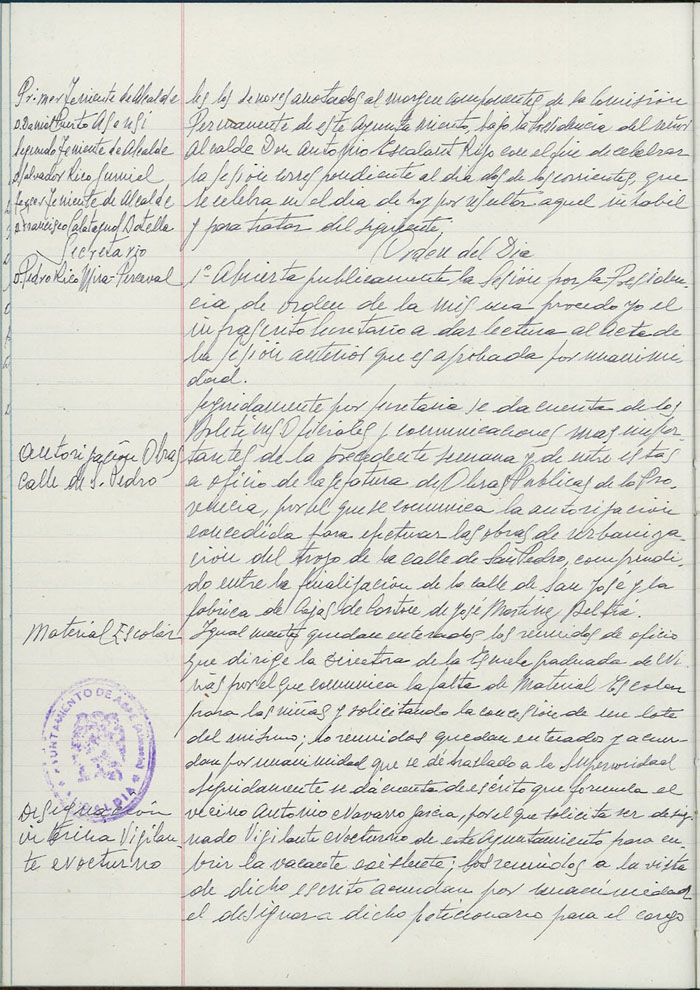 Primer Teniente de Alcalde
D. Daniel Puerto Asensi
Segundo Teniente de Alcalde
D. Salvador Rico
Tercer Teniente de Alcalde
D. Francisco Calatayud Botella
Secretario
D. Pedro Rico Mira-Perceval
los señores anotados al margen componentes de la Comision
Permanente de este Ayuntamiento, bajo la Presidencia del señor
Alcalde Don Antonio Escalant Rifo con el fin de celebrar
la sesion correspondiente al dia dos de los corrientes, que
se celebra en el dia de hoy por resultar aquel inhabil
y para tratar del siguiente
Orden del Dia
1º Abierta publicamente la sesion por la Presiden-
cia de orden de la misma procedo yo el
infrascrito Secretario a dar lectura al acta de
la sesion anterior que es aprobada por unanimi-
dad.
Autorización Obras
calle de S. Pedro
Seguidamente por Secretaria se da cuenta de los
Boletines Oficiales y comunicaciones mas impor-
tantes de la precedente semana y de entre estas
a oficio de la Jefatura de Obras Publicas de la Pro-
vincia, por el que se comunica la autorizacion
concedida para efectuar las obras de urbaniza-
cion del trozo de la calle de San Pedro, comprendi-
do entre la finalizacion de la calle de San Jose y la
fabrica de Cajas de Carton de Jose Martinez Beltrá.
Material Escolar
Igualmente quedan enterados los reunidos de oficio
que dirige la Directora de la Escuela graduada de Ni-
ñas por el que comunica la falta de Material Escolar
para las niñas y solicitando la concesión de un lote
del mismo; los reunidos quedan enterados y acuer-
dan por unanimidad que se dé traslado a la Superioridad
AYUNTAMIENTO DE ASPE (Alicante)
ALCALDIA
Designación
interina Vigilan-
te Nocturno
Seguidamente se da cuenta de escrito que formula el
vecino Antonio Navarro Garcia, por el que solicita ser desig-
nado Vigilante Nocturno de este Ayuntamiento para cu-
brir la vacante existente; los reunidos a la vista
de dicho escrito acuerdan por unanimidad
el designar a dicho peticionario para el cargo